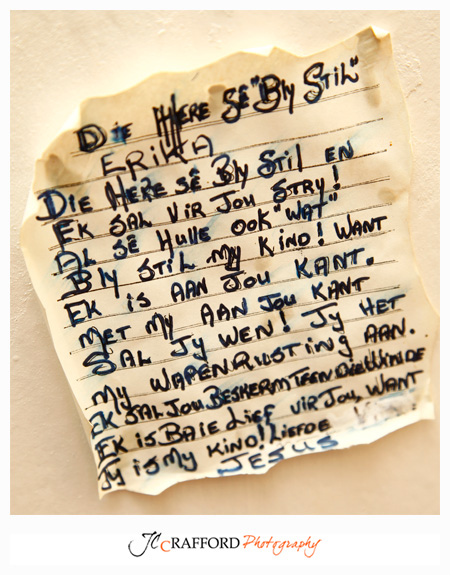 DiE HERE SÊ "BLy STiL"
ERiKA
DiE HERE SÊ BLy STiL EN
EK SAL ViR Jou STRY!
AL SÊ HuLLE OOK "WAT"
BLy STiL My KiND! WANT
EK iS AAN Jou KANT.
MET My AAN Jou KANT
SAL Jy WEN! Jy HET
My WAPENRuSTing AAN.
EK SAL Jou BESKERM TEEN DiE WiNDE
EK iS BAiE LiEF ViR Jou, WANT
Jy iS My KiND! LiEFDE
JESUS
JC CRAFFORD Photography